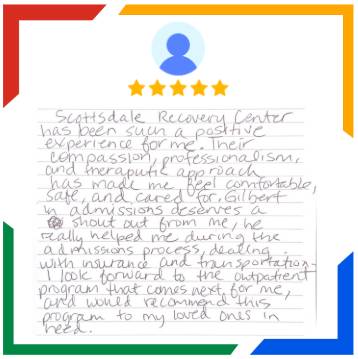 Scottsdale Recovery Center
has been such a positive
experience for me. Their
compassion, professionalism,
and theraputic approach
has made me feel comfortable,
safe, and cared for. Gilbert
in admissions deserves a
shout out from me, he
really helped me during the
admissions process, dealing
with insurance and transportation.
I look forward to the outpatient
program that comes next for me,
and would recommend this
program to my loved ones in
need.